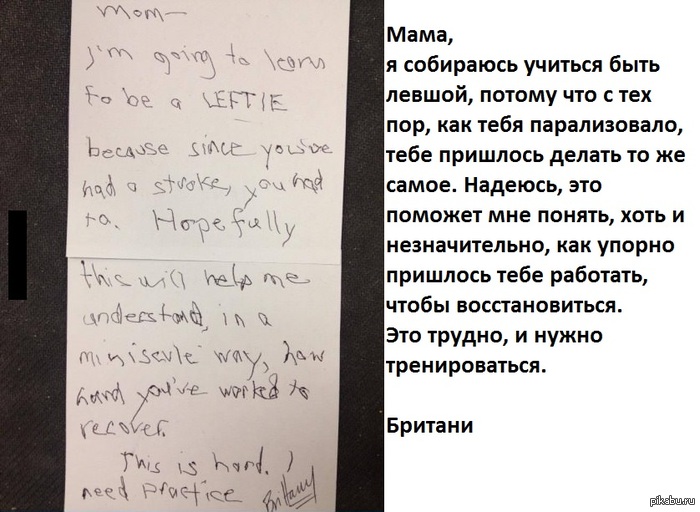 Mom—
I'm going to learn
to be a LEFTIE
because since you've
had a stroke, you had
to. Hopefully
this will help me
understand, in a
miniscule way, how
hard you've worked to
recover.
This is hard. I
need practice
Brittany
Мама,
я собираюсь учиться быть
левшой, потому что с тех
пор, как тебя парализовало,
тебе пришлось делать то же
самое. Надеюсь, это
поможет мне понять, хоть и
незначительно, как упорно
пришлось тебе работать,
чтобы восстановиться.
Это трудно, и нужно
тренироваться.
Британи
pikabu.ru